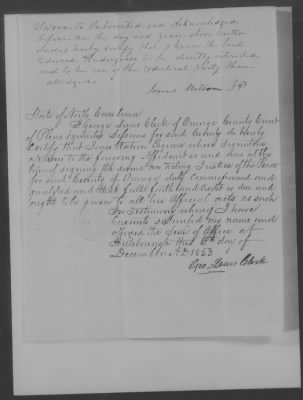 Sworn to & subscribed and acknowledged
before me the day and year above written
and I hereby certify that I know the said
Edward to be directly
and to be one of the identical party therein
alledged.
Jones Watson JP
State of North Carolina
I George Laws Clerk of Orange County Court
of Pleas & Quarter Sessions for said County do hereby
Certify that Jones Watson Esquire whose signature
to the foregoing Affidavit was at the
time of signing the same an acting Justice of the Peace
for said County of Orange duly commissioned and
qualified and that full faith and credit is due and
ought to be given to all his Official acts as such
In Testimony whereof I have
hereunto subscribed my name and
affixed the Seal of Office at
Hillsborough this 6th day of
December A.D. 1853
Geo. Laws Clerk